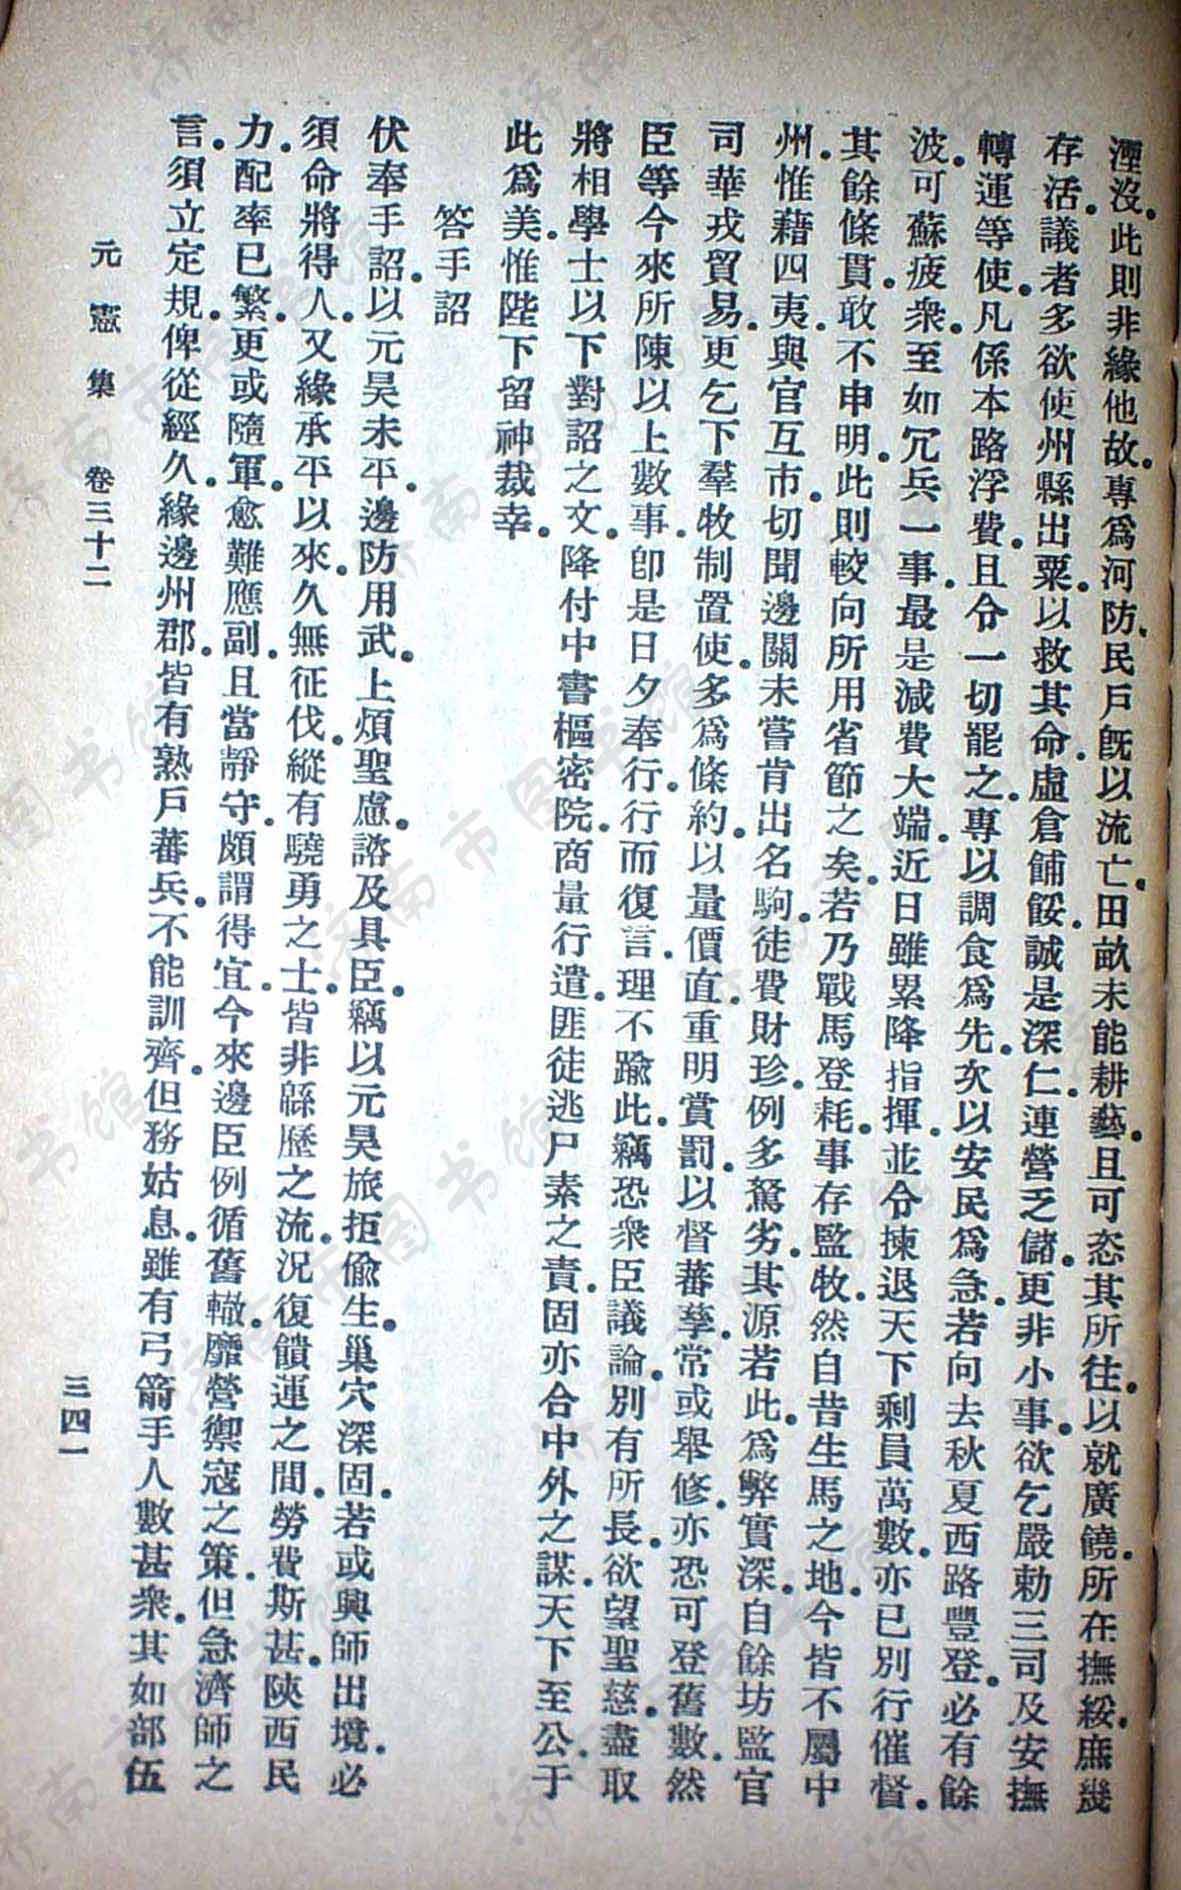 湮沒。此則非緣他故。專爲河防、民戶旣以流亡。田畝未能耕藝。且可恣其所往。以就廣饒。所在撫綏。庶幾
存活。議者多欲使州縣出粟。以救其命。虛倉餔餒。誠是深仁。連營乏儲。更非小事。欲乞嚴勅三司及安撫
轉運等使。凡係本路浮費。且令一切罷之。專以調食爲先。次以安民爲急。若向去秋夏西路豐登。必有餘
波。可蘇疲衆。至如冗兵一事。最是減費大端。近日雖累降指揮。並令揀退天下剩員萬數。亦已別行催督。
其餘條貫。敢不申明。此則較向所用省節之矣。若乃戰馬登耗。事存監牧。然自昔生馬之地。今皆不屬中
州。惟藉四夷。與官互市。切聞邊關未嘗肯出名駒。徒費財珍。例多駑劣。其源若此。爲弊實深。自餘坊監官
司華戎貿易。更乞下羣牧制置使。多爲條約。以量價直。重明賞罰。以督蕃孳。常或舉修。亦恐可登舊數。然
臣等今來所陳以上數事。卽是日夕奉行。行而復言。理不踰此。竊恐衆臣議論。別有所長。欲望聖慈。盡取
將相學士以下對詔之文。降付中書樞密院。商量行遣。匪徒逃尸素之責。固亦合中外之謀。天下至公。于
此爲美。惟陛下留神裁幸。
答手詔
伏奉手詔。以元昊未平。邊防用武。上煩聖慮。諮及具臣。竊以元昊旅拒偷生。巢穴深固。若或興師出境。必
須命將得人。又緣承平以來。久無征伐。縱有驍勇之士。皆非繇歷之流。況復饋運之間。勞費斯甚。陝西民
力。配率已繁。更或隨軍。愈難應副。且當靜守。頗謂得宜。今來邊臣例循舊轍。靡營禦寇之策。但急濟師之
言。須立定規。俾從經久。緣邊州郡。皆有熟戶蕃兵。不能訓齊。但務姑息。雖有弓箭手人數甚衆。其如部伍
元憲集 卷三十二 三四一